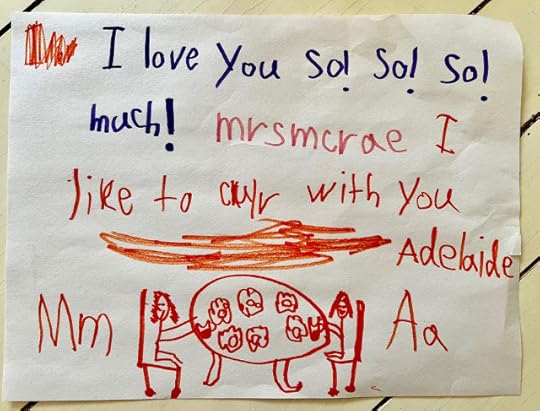 I love you so! so! so!
much! mrsmcrae I
like to with you
Adelaide
Mm Aa